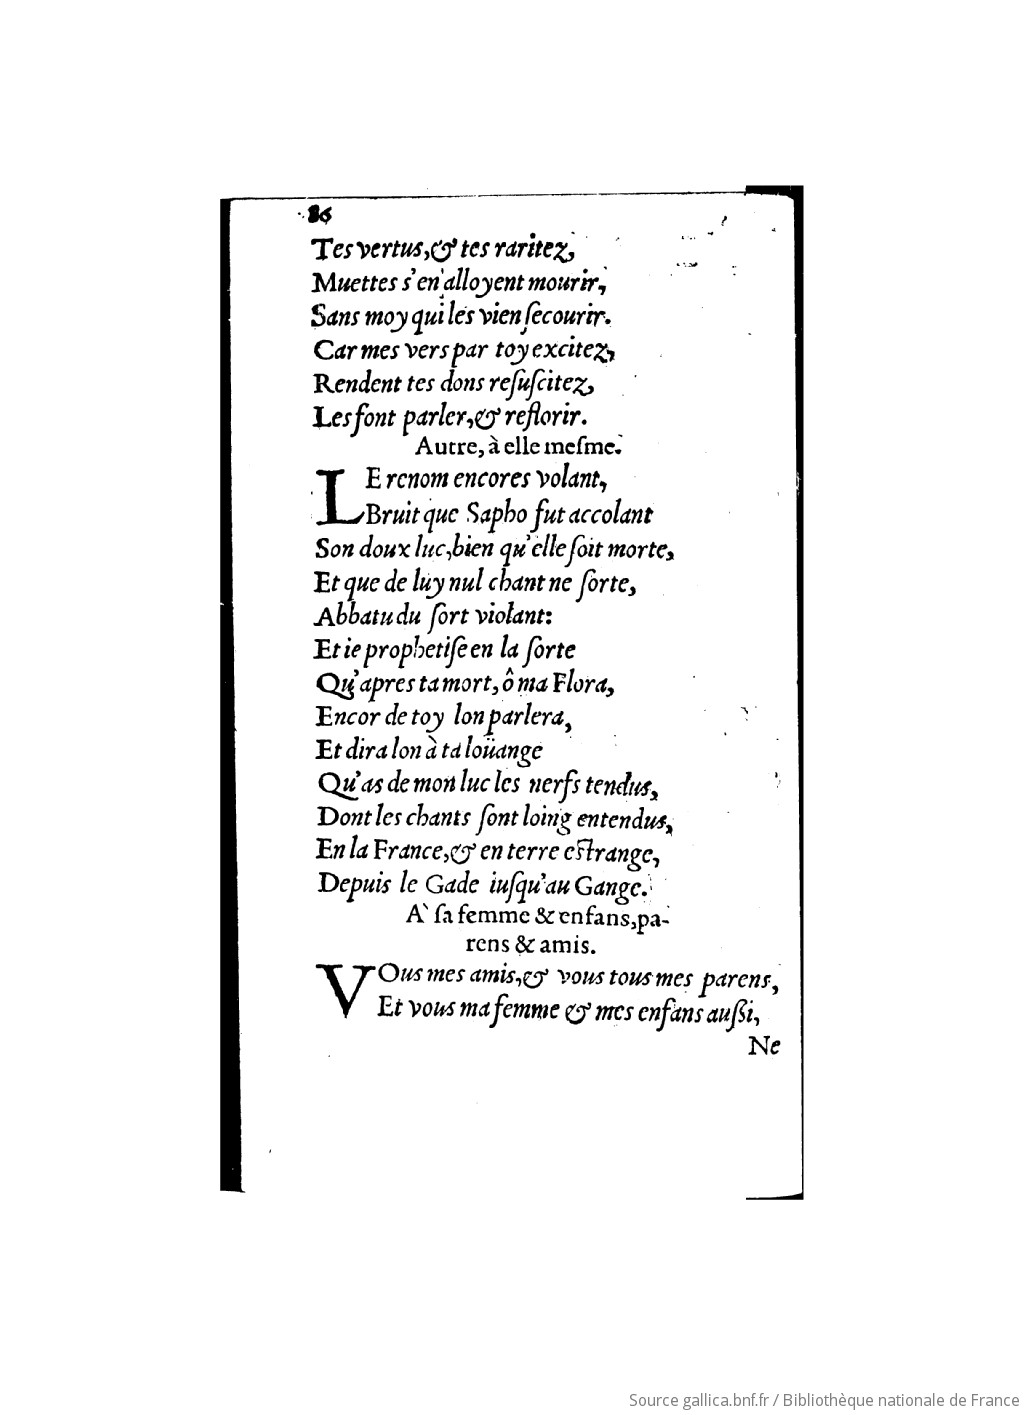 86
Tes vertus, & tes raritez,
Muettes s'en alloyent mourir,
Sans moy qui les vien ſecourir.
Car mes vers par toy excitez,
Rendent tes dons reſuſcitez,
Les font parler, & reflorir.
Autre, à elle meſme.
LE renom encores volant,
Bruit que Sapho fut accolant
Son doux luc, bien qu'elle ſoit morte,
Et que de luy nul chant ne ſorte,
Abbatu du ſort violant:
Et ie prophetiſe en la ſorte
Qu'apres ta mort, ô ma Flora,
Encor de toy lon parlera,
Et dira lon à ta loüange
Qu'as de mon luc les nerfs tendus,
Dont les chants ſont loing entendus,
En la France, & en terre eſtrange,
Depuis le Gade iuſqu'au Gange.
A' ſa femme & enfans, pa-
rens & amis.
VOus mes amis, & vous tous mes parens,
Et vous ma femme & mes enfans auſsi,
Ne
Source gallica.bnf.fr / Bibliothèque nationale de France